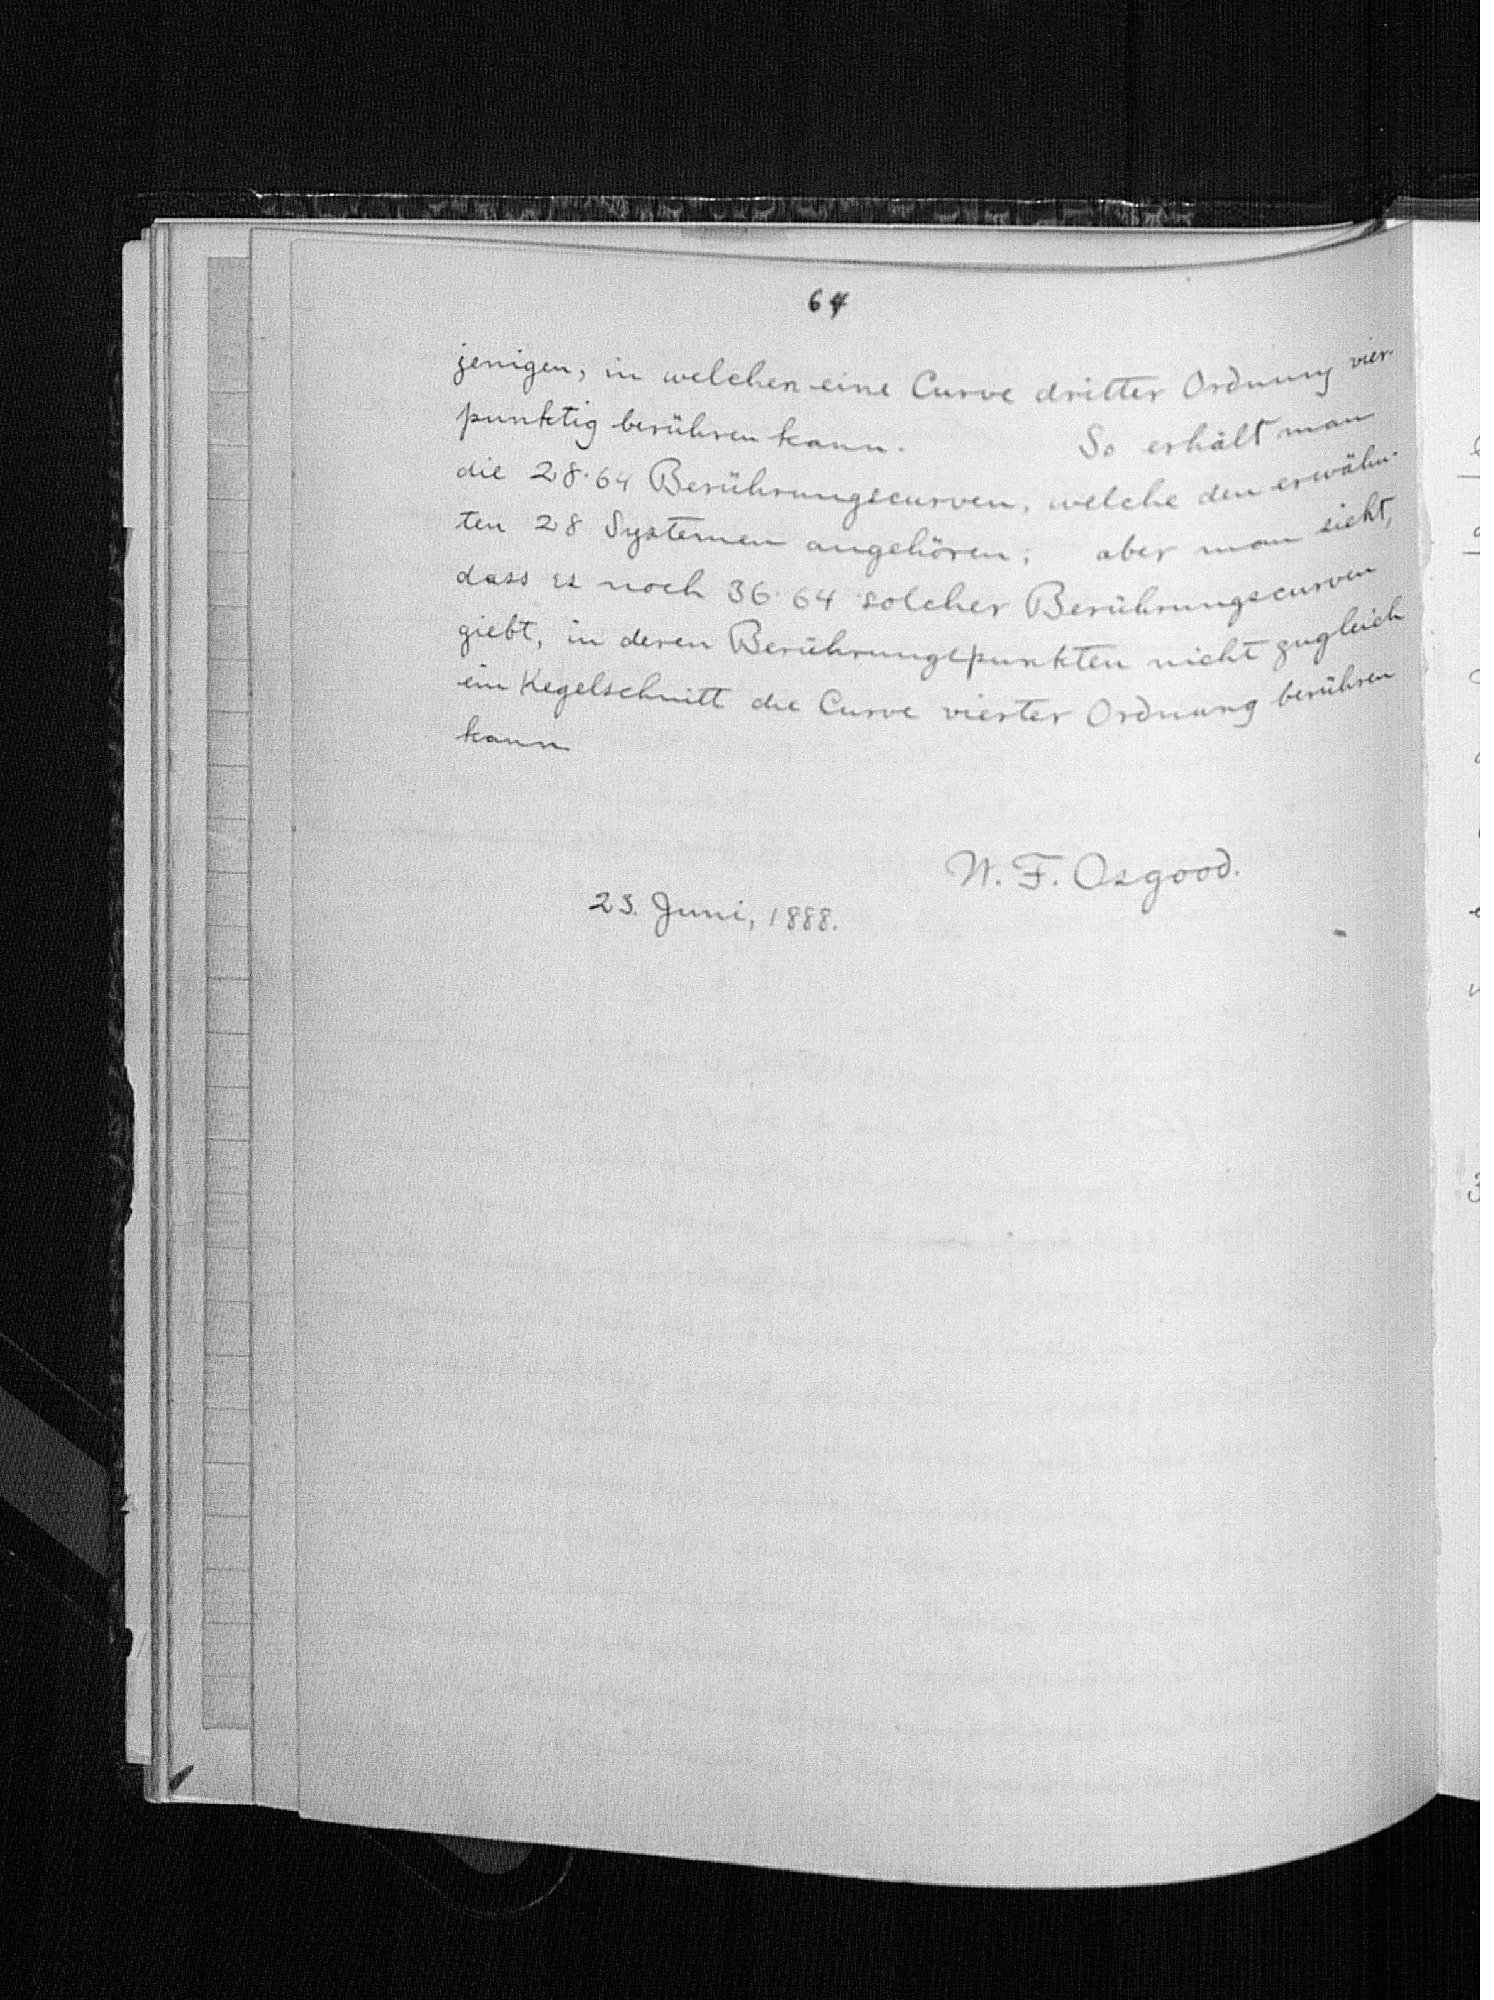 64
jenigen, in welchen eine Curve dritter Ordnung vier-
punktig berühren kann. So erhält man
die 28·64 Berührungscurven, welche den erwähn-
ten 28 Systemen angehören; aber man sieht,
dass es noch 36·64 solcher Berührungscurven
giebt, in deren Berührungspunkten nicht zugleich
ein Kegelschnitt die Curve vierter Ordnung berühren
kann
W. F. Osgood.
25. Juni, 1888.